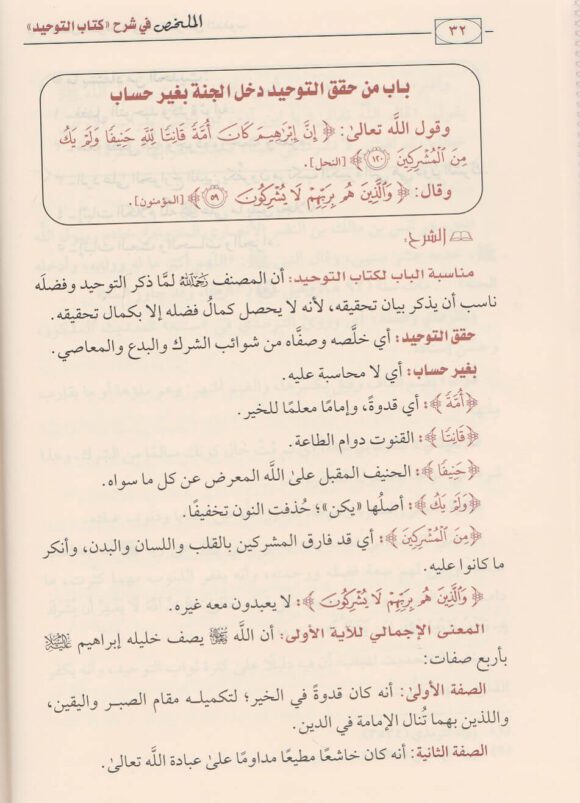 ٣٢
الملخص في شرح «كتاب التوحيد»
باب من حقق التوحيد دخل الجنة بغير حساب
وقول الله تعالى: ﴿إِنَّ إِبْرَاهِيمَ كَانَ أُمَّةً قَانِتًا لِلَّهِ حَنِيفًا وَلَمْ يَكُ
مِنَ الْمُشْرِكِينَ ١٢٠﴾ [النحل].
وقال: ﴿وَالَّذِينَ هُم بِرَبِّهِمْ لَا يُشْرِكُونَ ٥٩﴾ [المؤمنون].
الشرح:
مناسبة الباب لكتاب التوحيد: أن المصنف رحمه الله لمَّا ذكر التوحيد وفضلَه
ناسب أن يذكر بيان تحقيقه، لأنه لا يحصل كمالُ فضله إلا بكمال تحقيقه.
حقق التوحيد: أي خلَّصه وصفَّاه من شوائب الشرك والبدع والمعاصي.
بغير حساب: أي لا محاسبة عليه.
﴿أُمَّةً﴾: أي قدوةً، وإمامًا معلمًا للخير.
﴿قَانِتًا﴾: القنوت دوام الطاعة.
﴿حَنِيفًا﴾: الحنيف المقبل على الله المعرض عن كل ما سواه.
﴿وَلَمْ يَكُ﴾: أصلُها «يكن»؛ حُذفت النون تخفيفًا.
﴿مِنَ الْمُشْرِكِينَ﴾: أي قد فارق المشركين بالقلب واللسان والبدن، وأنكر
ما كانوا عليه.
﴿وَالَّذِينَ هُم بِرَبِّهِمْ لَا يُشْرِكُونَ﴾: لا يعبدون معه غيره.
المعنى الإجمالي للآية الأولى: أن الله ﷻ يصف خليله إبراهيم عليه السلام
بأربع صفات:
الصفة الأولى: أنه كان قدوةً في الخير؛ لتكميله مقام الصبر واليقين،
واللذين بهما تُنال الإمامة في الدين.
الصفة الثانية: أنه كان خاشعًا مطيعًا مداومًا على عبادة الله تعالى.